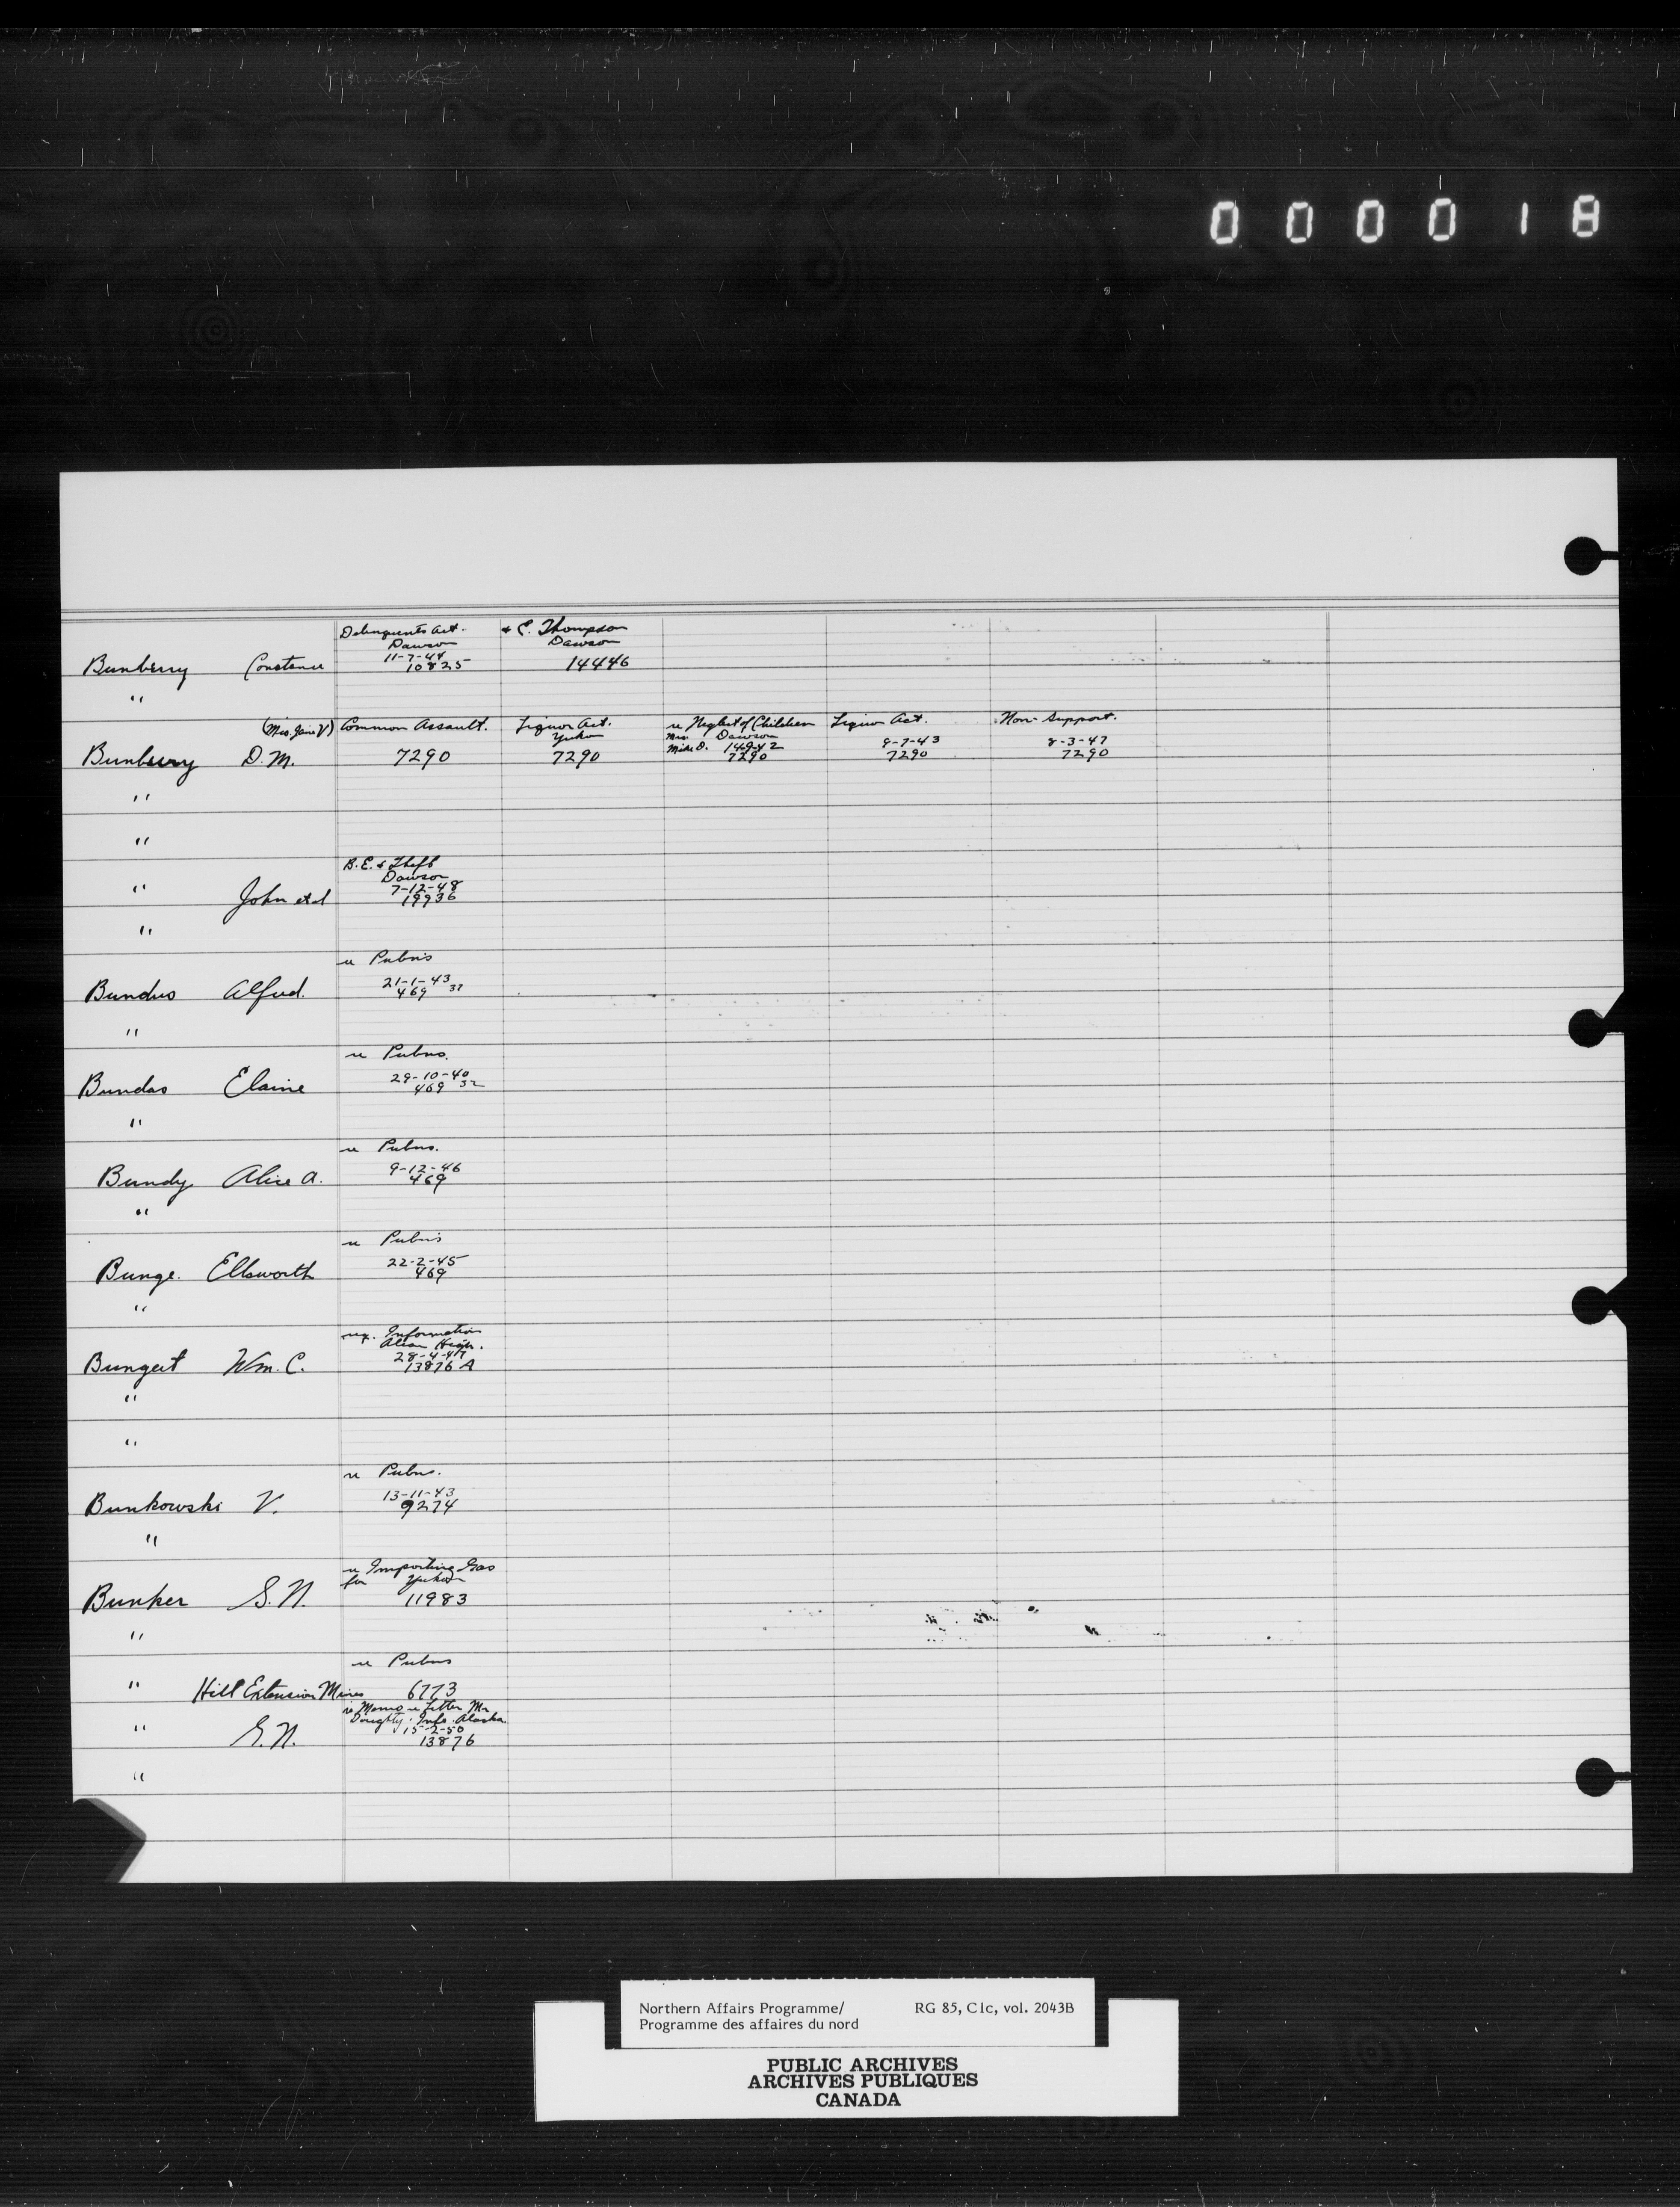 000018
Delinquents Act. & C. Thompson
Dawson Dawson
11-7-44
Bunberry Constance 10825 14446
"
(Mrs. Jane V) Common Assault. Liquor Act. re Neglect of Children Liquor Act. Non-Support.
Yukon Mrs. Dawson
Mike D. 14-9-42 9-7-43 8-3-47
Bunberry D.M. 7290 7290 7290 7290 7290
"
"
B.E. & Theft
Dawson
7-12-48
" John et al 19936
"
re Pubns
21-1-43
Bundus Alfred. 469 32
"
re Pubns.
29-10-40
Bundas Elaine 469 32
"
re Pubns.
9-12-46
Bundy Alice A. 469
"
re Pubns
22-2-45
Bunge. Ellsworth 469
"
req. Information
Alcan High.
28-4-47
Bungert Wm. C. 13876 A
"
"
re Pubns.
13-11-43
Bunkowski V. 9274
"
re Importing Gas
for Yukon
Bunker S.N. 11983
"
re Pubns
" Hill Extension Mines 6773
re Memo re Letter Mr
Doughty. Info. Alaska
15-2-50
" S.N. 13876
"
Northern Affairs Programme/ RG 85, C1c, vol. 2043B
Programme des affaires du nord
PUBLIC ARCHIVES
ARCHIVES PUBLIQUES
CANADA